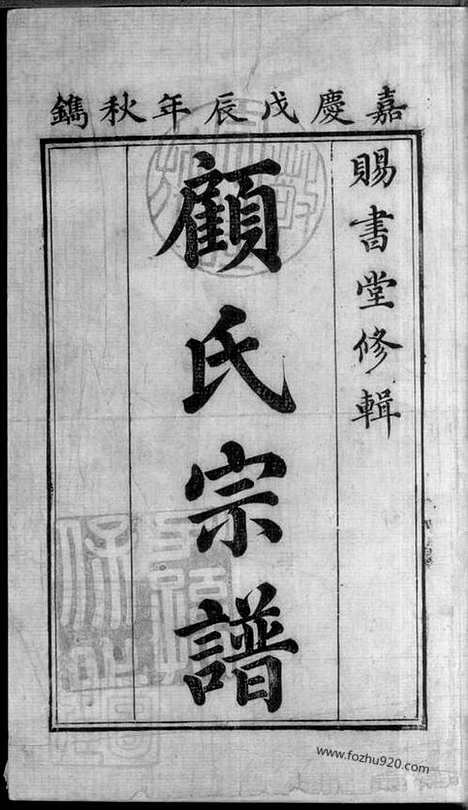 嘉慶戊辰年秋鐫
賜書堂修輯
顧氏宗譜
www.fozhu920.com